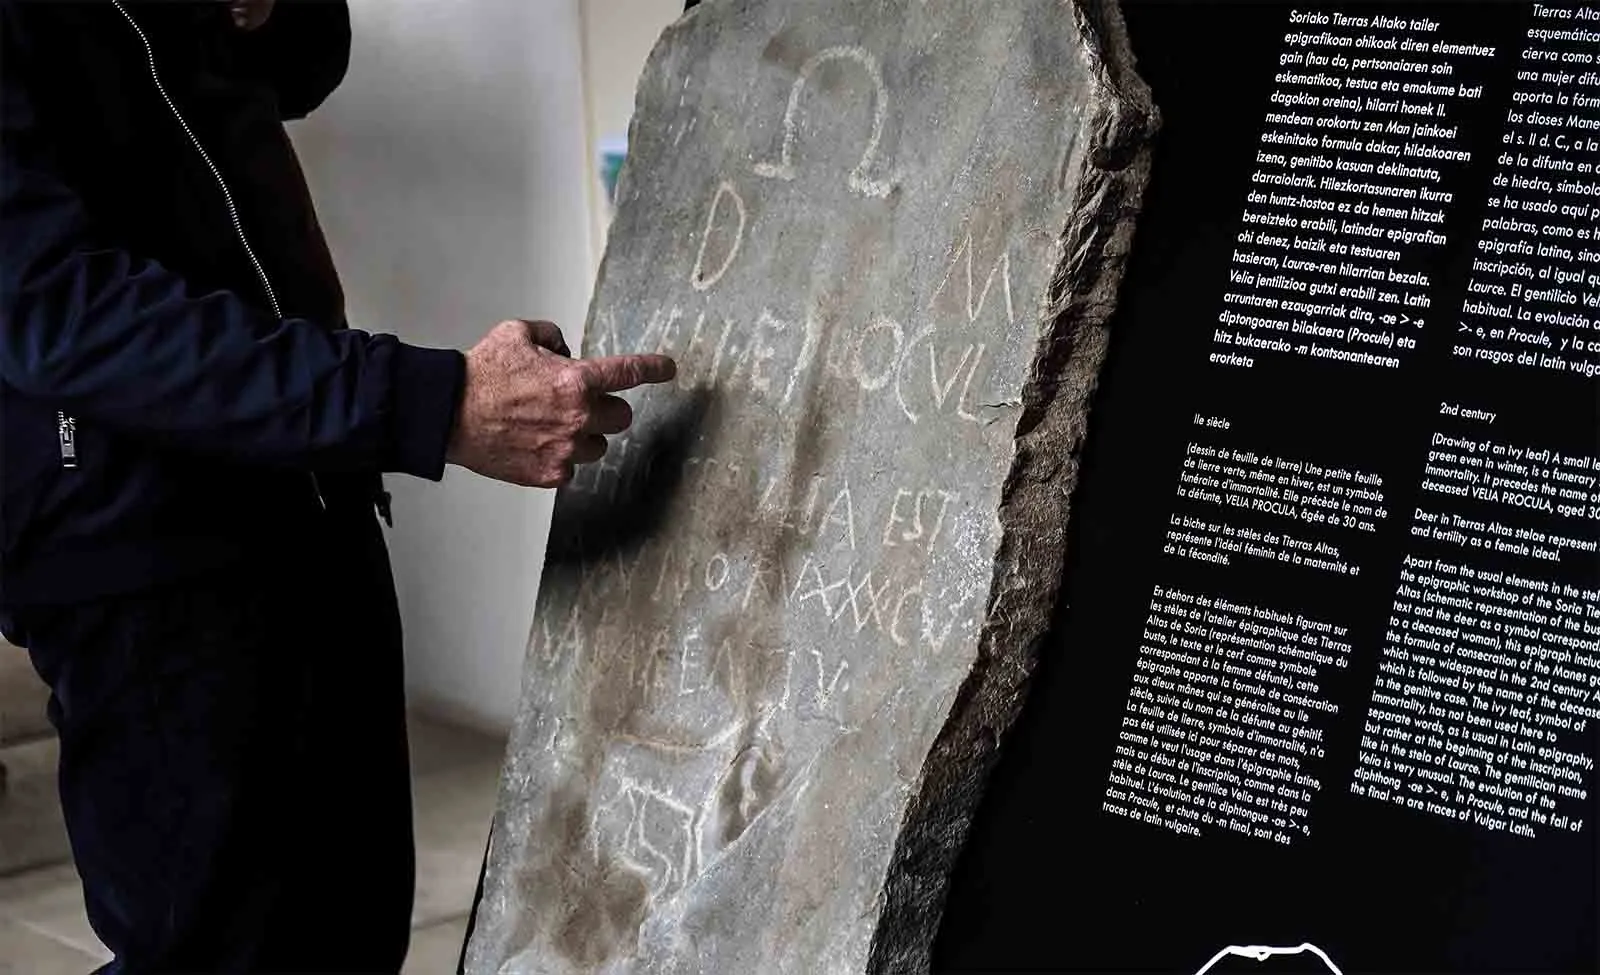 D M
EST
Soriako Tierras Altako tailer
epigrafikoan ohikoak diren elementuez
gain (hau da, pertsonaiaren soin
eskematikoa, testua eta emakume bati
dagokion oreina), hilarri honek II.
mendean orokortu zen Man jainkoei
eskeinitako formula dakar, hildakoaren
izena, genitibo kasuan deklinatuta,
darraiolarik. Hilezkortasunaren ikurra
den huntz-hostoa ez da hemen hitzak
bereizteko erabili, latindar epigrafian
ohi denez, baizik eta testuaren
hasieran, Laurce-ren hilarrian bezala.
Velia jentilizioa gutxi erabili zen. Latin
arruntaren ezaugarriak dira, -ae > -e
diptongoaren bilakaera (Procule) eta
hitz bukaerako -m kontsonantearen
erorketa
Tierras Alta
esquemática
cierva como s
una mujer difu
aporta la fórm
los dioses Mane
el s. II d. C., a la
de la difunta en
de hiedra, símbolo
se ha usado aquí p
palabras, como es h
epigrafía latina, sino
inscripción, al igual qu
Laurce. El gentilicio Vel
habitual. La evolución
>- e, en Procule, y la ca
son rasgos del latín vulga
IIe siècle
(dessin de feuille de lierre) Une petite feuille
de lierre verte, même en hiver, est un symbole
funéraire d'immortalité. Elle précède le nom de
la défunte, VELIA PROCULA, âgée de 30 ans.
La biche sur les stèles des Tierras Altas,
représente l'idéal féminin de la maternité et
de la fécondité.
En dehors des éléments habituels figurant sur
les stèles de l'atelier épigraphique des Tierras
Altas de Soria (représentation schématique du
buste, le texte et le cerf comme symbole
correspondant à la femme défunte), cette
épigraphe apporte la formule de consécration
aux dieux mânes qui se généralise au IIe
siècle, suivie du nom de la défunte au génitif.
La feuille de lierre, symbole d'immortalité, n'a
pas été utilisée ici pour séparer des mots,
comme le veut l'usage dans l'épigraphie latine,
mais au début de l'inscription, comme dans la
stèle de Laurce. Le gentilice Velia est très peu
habituel. L'évolution de la diphtongue -ae >- e,
dans Procule, et chute du -m final, sont des
traces de latin vulgaire.
2nd century
(Drawing of an ivy leaf) A small le
green even in winter, is a funerary
immortality. It precedes the name of
deceased VELIA PROCULA, aged 30
Deer in Tierras Altas stelae represent
and fertility as a female ideal.
Apart from the usual elements in the stel
the epigraphic workshop of the Soria Tie
Altas (schematic representation of the bus
text and the deer as a symbol correspond
to a deceased woman), this epigraph inclu
the formula of consecration of the Manes go
which were widespread in the 2nd century A
which is followed by the name of the decease
in the genitive case. The ivy leaf, symbol of
immortality, has not been used here to
separate words, as is usual in Latin epigraphy,
but rather at the beginning of the inscription,
like in the stela of Laurce. The gentilician name
Velia is very unusual. The evolution of the
diphthong -ae >- e, in Procule, and the fall of
the final -m are traces of Vulgar Latin.